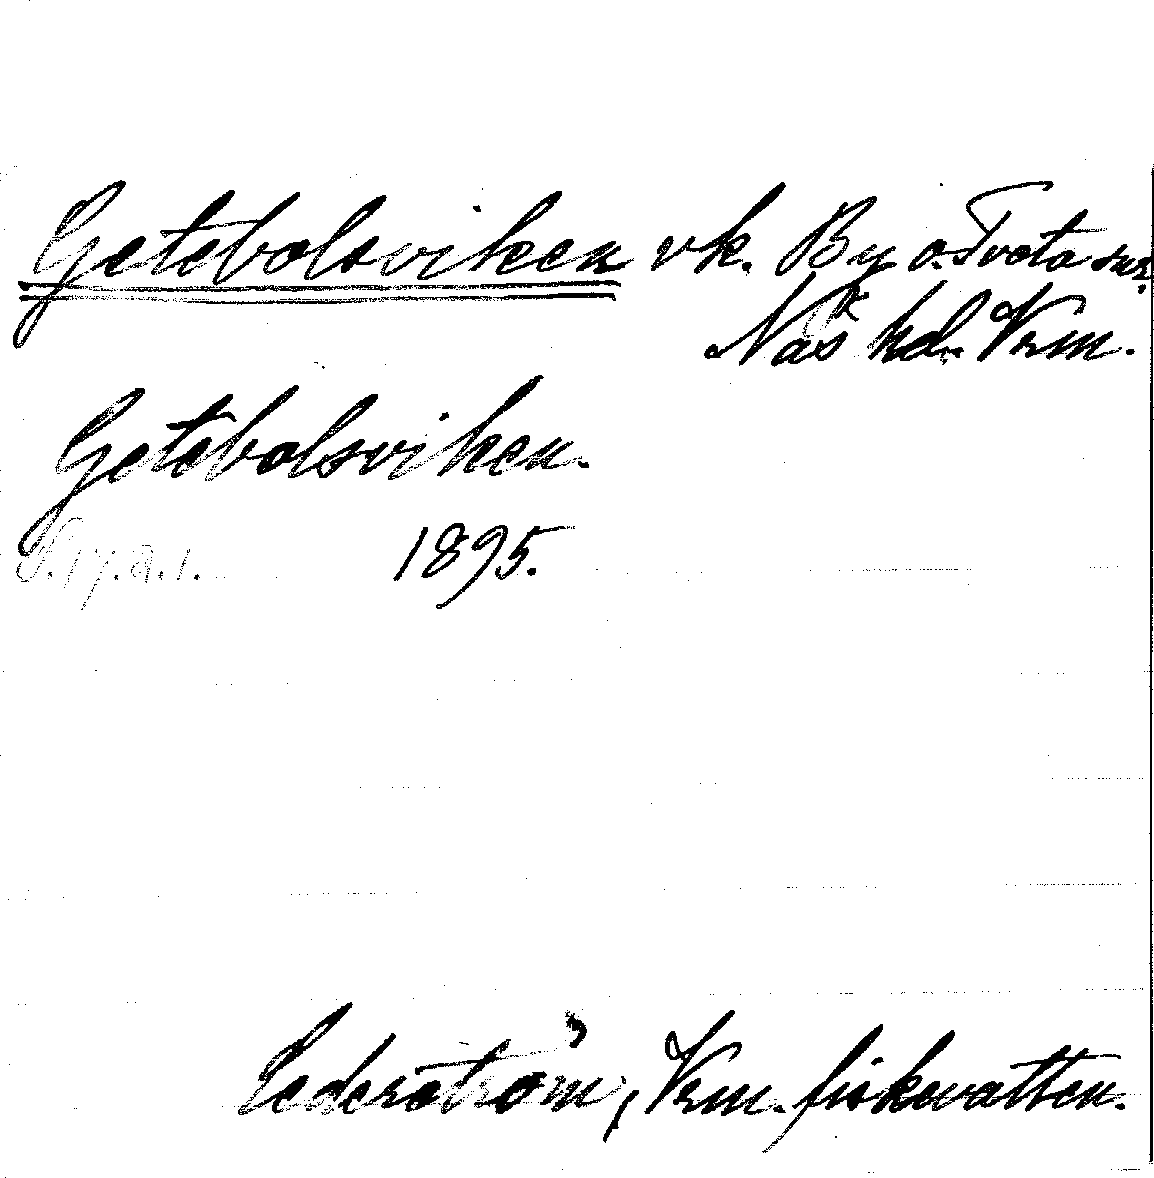 Getebolsviken vk. By o. Tveta snr.
Näs hd. Vrm.
Getebolsviken.
1895.
Cederström, Vrm. fiskevatten.